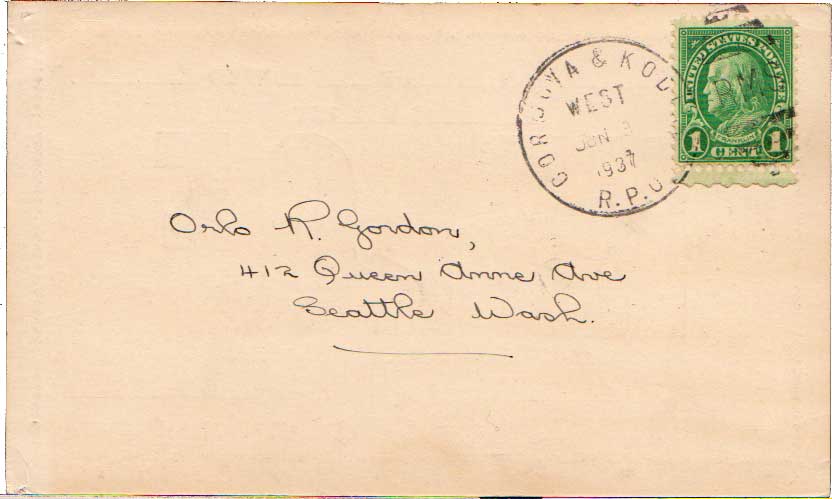 CORDOVA & KOD
WEST
JUN 3
1937
R.P.O.
UNITED STATES POSTAGE
R.M.
FRANKLIN
1 CENT 1
Orlo R. Gordon,
412 Queen Anne Ave
Seattle Wash.